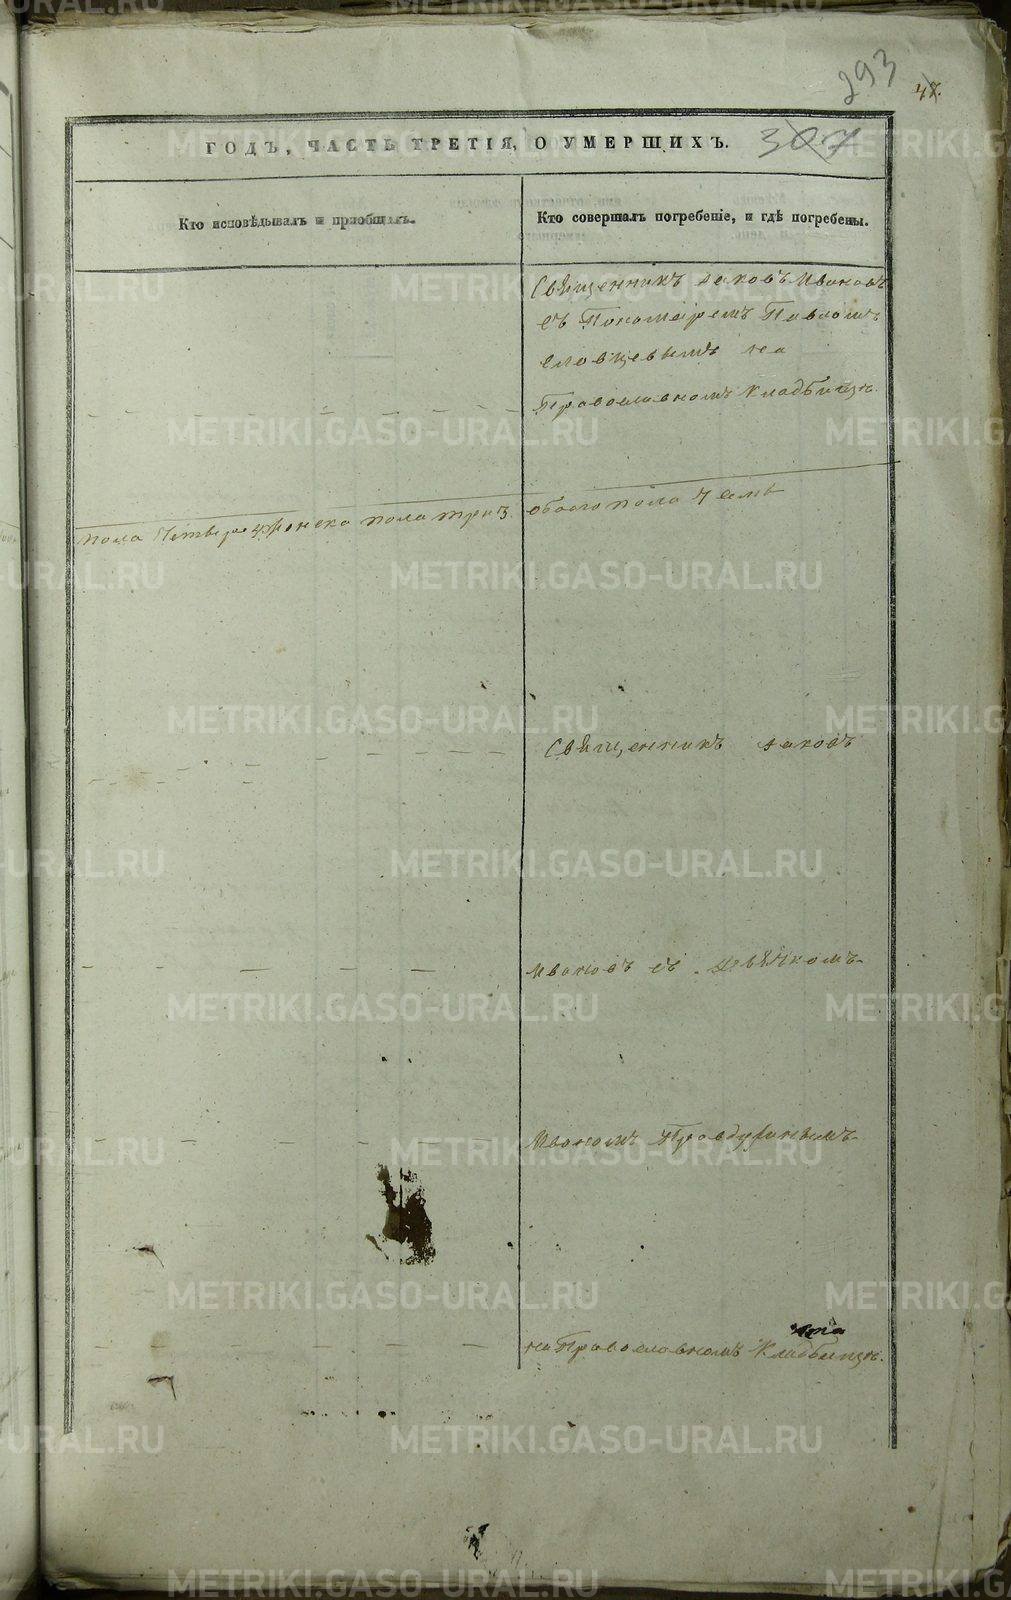 293
47.
307
ГОДЪ, ЧАСТЬ ТРЕТІЯ, О УМЕРШИХЪ.
Кто исповѣдывалъ и пріобщалъ.
Кто совершалъ погребеніе, и гдѣ погребены.
Священникъ Іаковъ Ивановъ
съ Пономаремъ Павломъ
Словцевымъ на
Православномъ Кладбищѣ.
пола Четверо 4, женска пола три 3. обоего пола 7 емь
Священникъ Іаковъ
Ивановъ съ Дьячкомъ
Иваномъ
на Православномъ Кладбищѣ.
METRIKI.GASO-URAL.RU